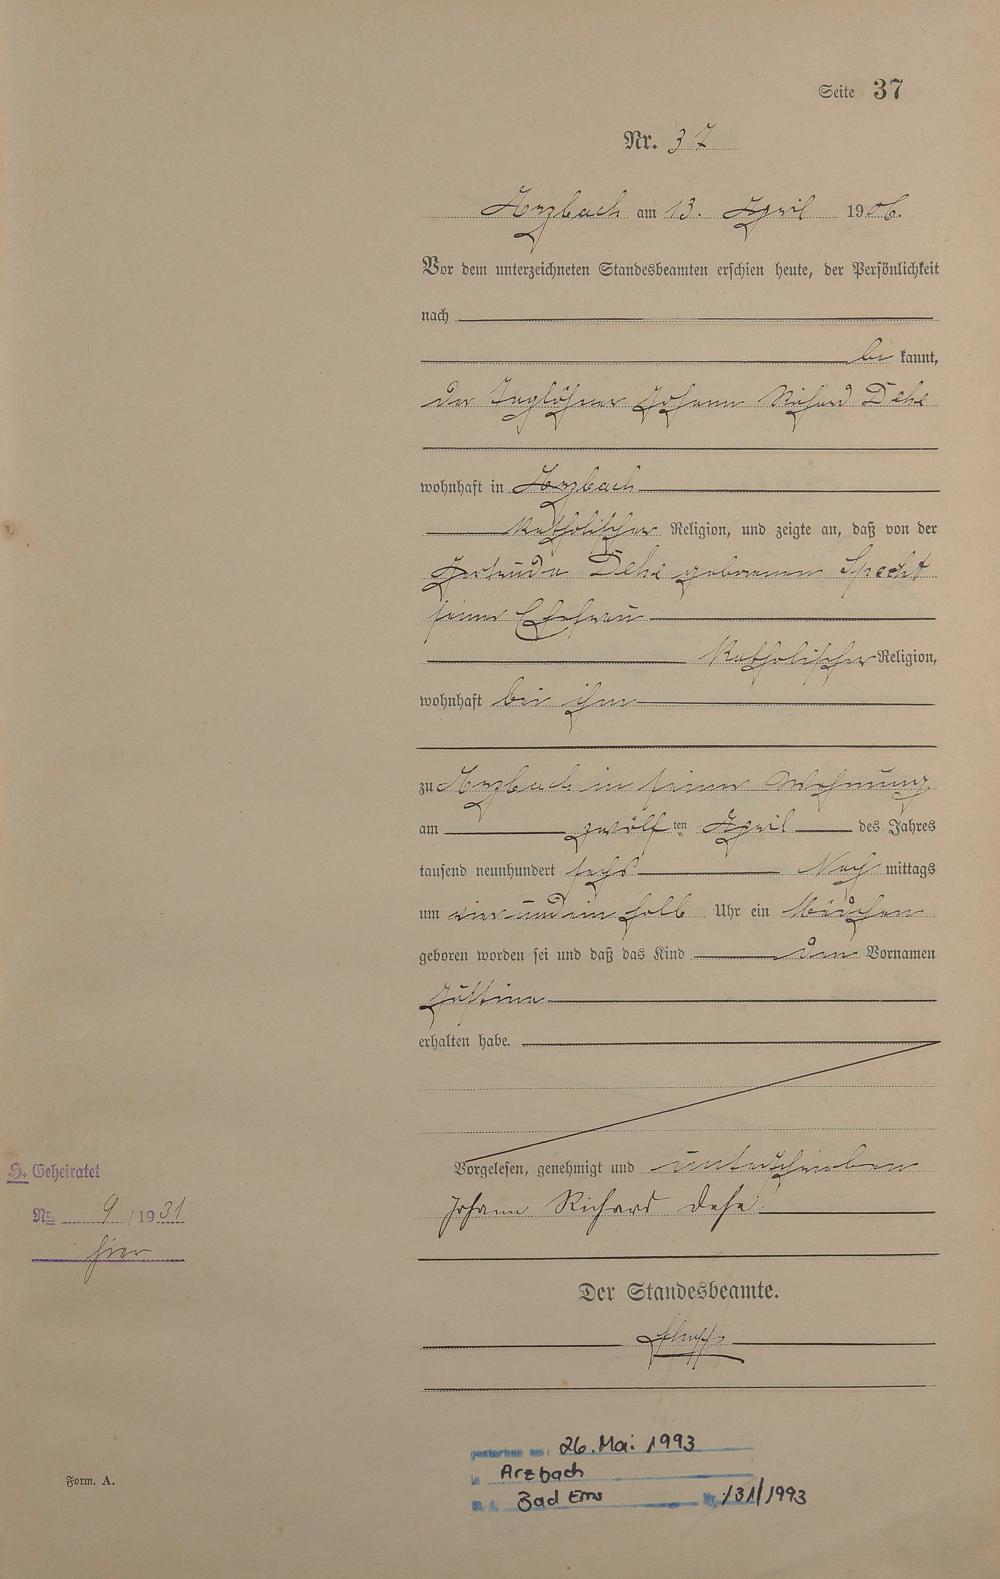 Seite 37
Nr. 37
Arzbach am 13. April 1906.
Vor dem unterzeichneten Standesbeamten erschien heute, der Persönlichkeit
nach
be kannt,
der Taglöhner Johann Richard Dehe
wohnhaft in Arzbach
katholischer Religion, und zeigte an, daß von der
Gertrude Dehe geborenen Specht
seiner Ehefrau
katholischer Religion,
wohnhaft bei ihm
zu Arzbach in seiner Wohnung
am zwölf ten April des Jahres
tausend neunhundert sechs Nach mittags
um vier und ein halb Uhr ein Mädchen
geboren worden sei und daß das Kind den Vornamen
Justina
erhalten habe.
Vorgelesen, genehmigt und unterschrieben
Johann Richard Dehe.
H. Geheiratet
Nr. 9 / 1931
hier
Der Standesbeamte.
gestorben am: 26. Mai 1993
in Arzbach
St. A. Bad Ems Nr. 131/1993
Form. A.